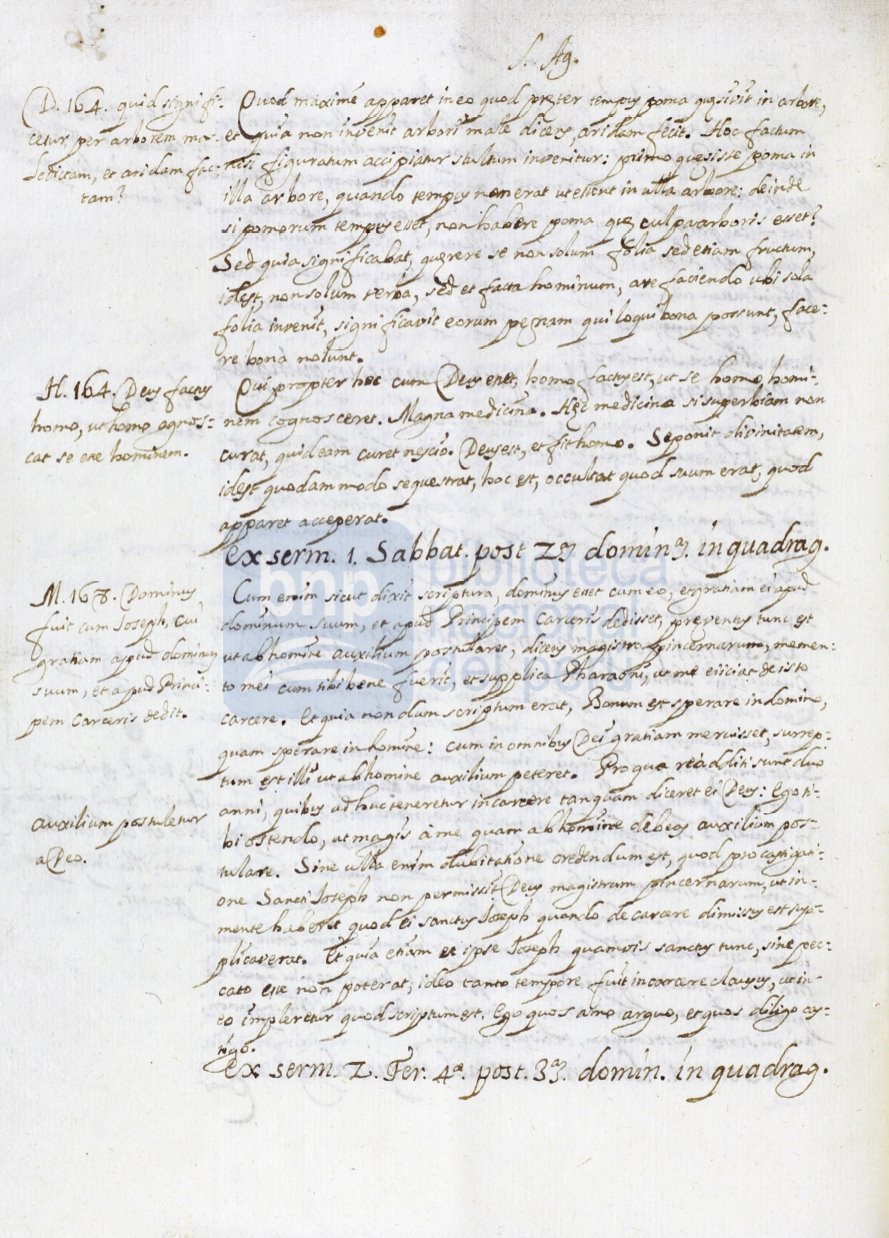 S. Ag.
D. 164. quid signifi-
cetur per arborem ma-
ledictam, et aridam fac-
tam?
Quod maximè apparet in eo quod pręter tempus poma quęsivit in arbore,
et quia non invenit arbori male dicens, aridam fecit. Hoc factum
nisi figuratum accipiatur stultum invenitur: primo quęsisse poma in
illa arbore, quando tempus non erat ut essent in ulla arbore: deinde
si pomorum tempus esset, non habere poma quę culpa arboris esset?
Sed quia significabat, quęrere se non solum folia sed etiam fructum,
idest, non solum verba, sed et facta hominum, arefaciendo ubi sola
folia invenit, significavit eorum pęnam qui loqui bona possunt, face-
re bona nolunt.
H. 164. Deus factus
homo, ut homo agnos-
cat se esse hominem.
Qui propter hoc cum Deus esset, homo factus est, ut se homo homi-
nem cognosceret. Magna medicina. Hęc medicina si superbiam non
curat, quid eam curet nescio. Deus est, et fit homo. Seponit divinitatem,
idest quodammodo sequestrat, hoc est, occultat quod suum erat, quod
apparet acceperat.
Ex serm. 1. Sabbat. post 2ą. dominą. in quadrag.
M. 168. Dominus
fuit cum Joseph, cui
gratiam apud dominum
suum, et apud Princi-
pem Carceris dedit.
Cum enim sicut dixit scriptura, dominus esset cum eo, et gratiam ei apud
dominum suum, et apud Principem Carceris dedisset, pręventus tunc est
ut ab homine auxilium postularet, dicens magistro pincernarum, memen-
to mei cum tibi bene fuerit, et supplica Pharaoni, ut me eiiciat de isto
carcere. Et quia nondum scriptum erat, Bonum est sperare in domino,
quam sperare in homine: cum in omnibus Dei gratiam meruisset, surrep-
tum est illi ut ab homine auxilium peteret. Pro qua re additi sunt duo
anni, quibus adhuc teneretur in carcere tanquam diceret ei Deus: Ego ti-
bi ostendo, ut magis à me quam ab homine debeas auxilium pos-
tulare. Sine ulla enim dubitatione credendum est, quod pro castigati-
one Sancti Joseph non permissit Deus magistrum pincernarum, ut in
mente haberet quod ei sanctus Joseph quando de carcere dimissus est sup-
plicaverat. Et quia etiam et ipse Joseph quamvis sanctus tunc, sine pec-
cato esse non poterat, ideo tanto tempore fuit in carcere clausus, ut in
eo impleretur quod scriptum est, Ego quos amo arguo, et quos diligo cas-
tigo.
auxilium postuletur
a Deo.
Ex serm. 2. Fer. 4ª. post. 3ą. domin. in quadrag.
bnp biblioteca
nacional
del perú